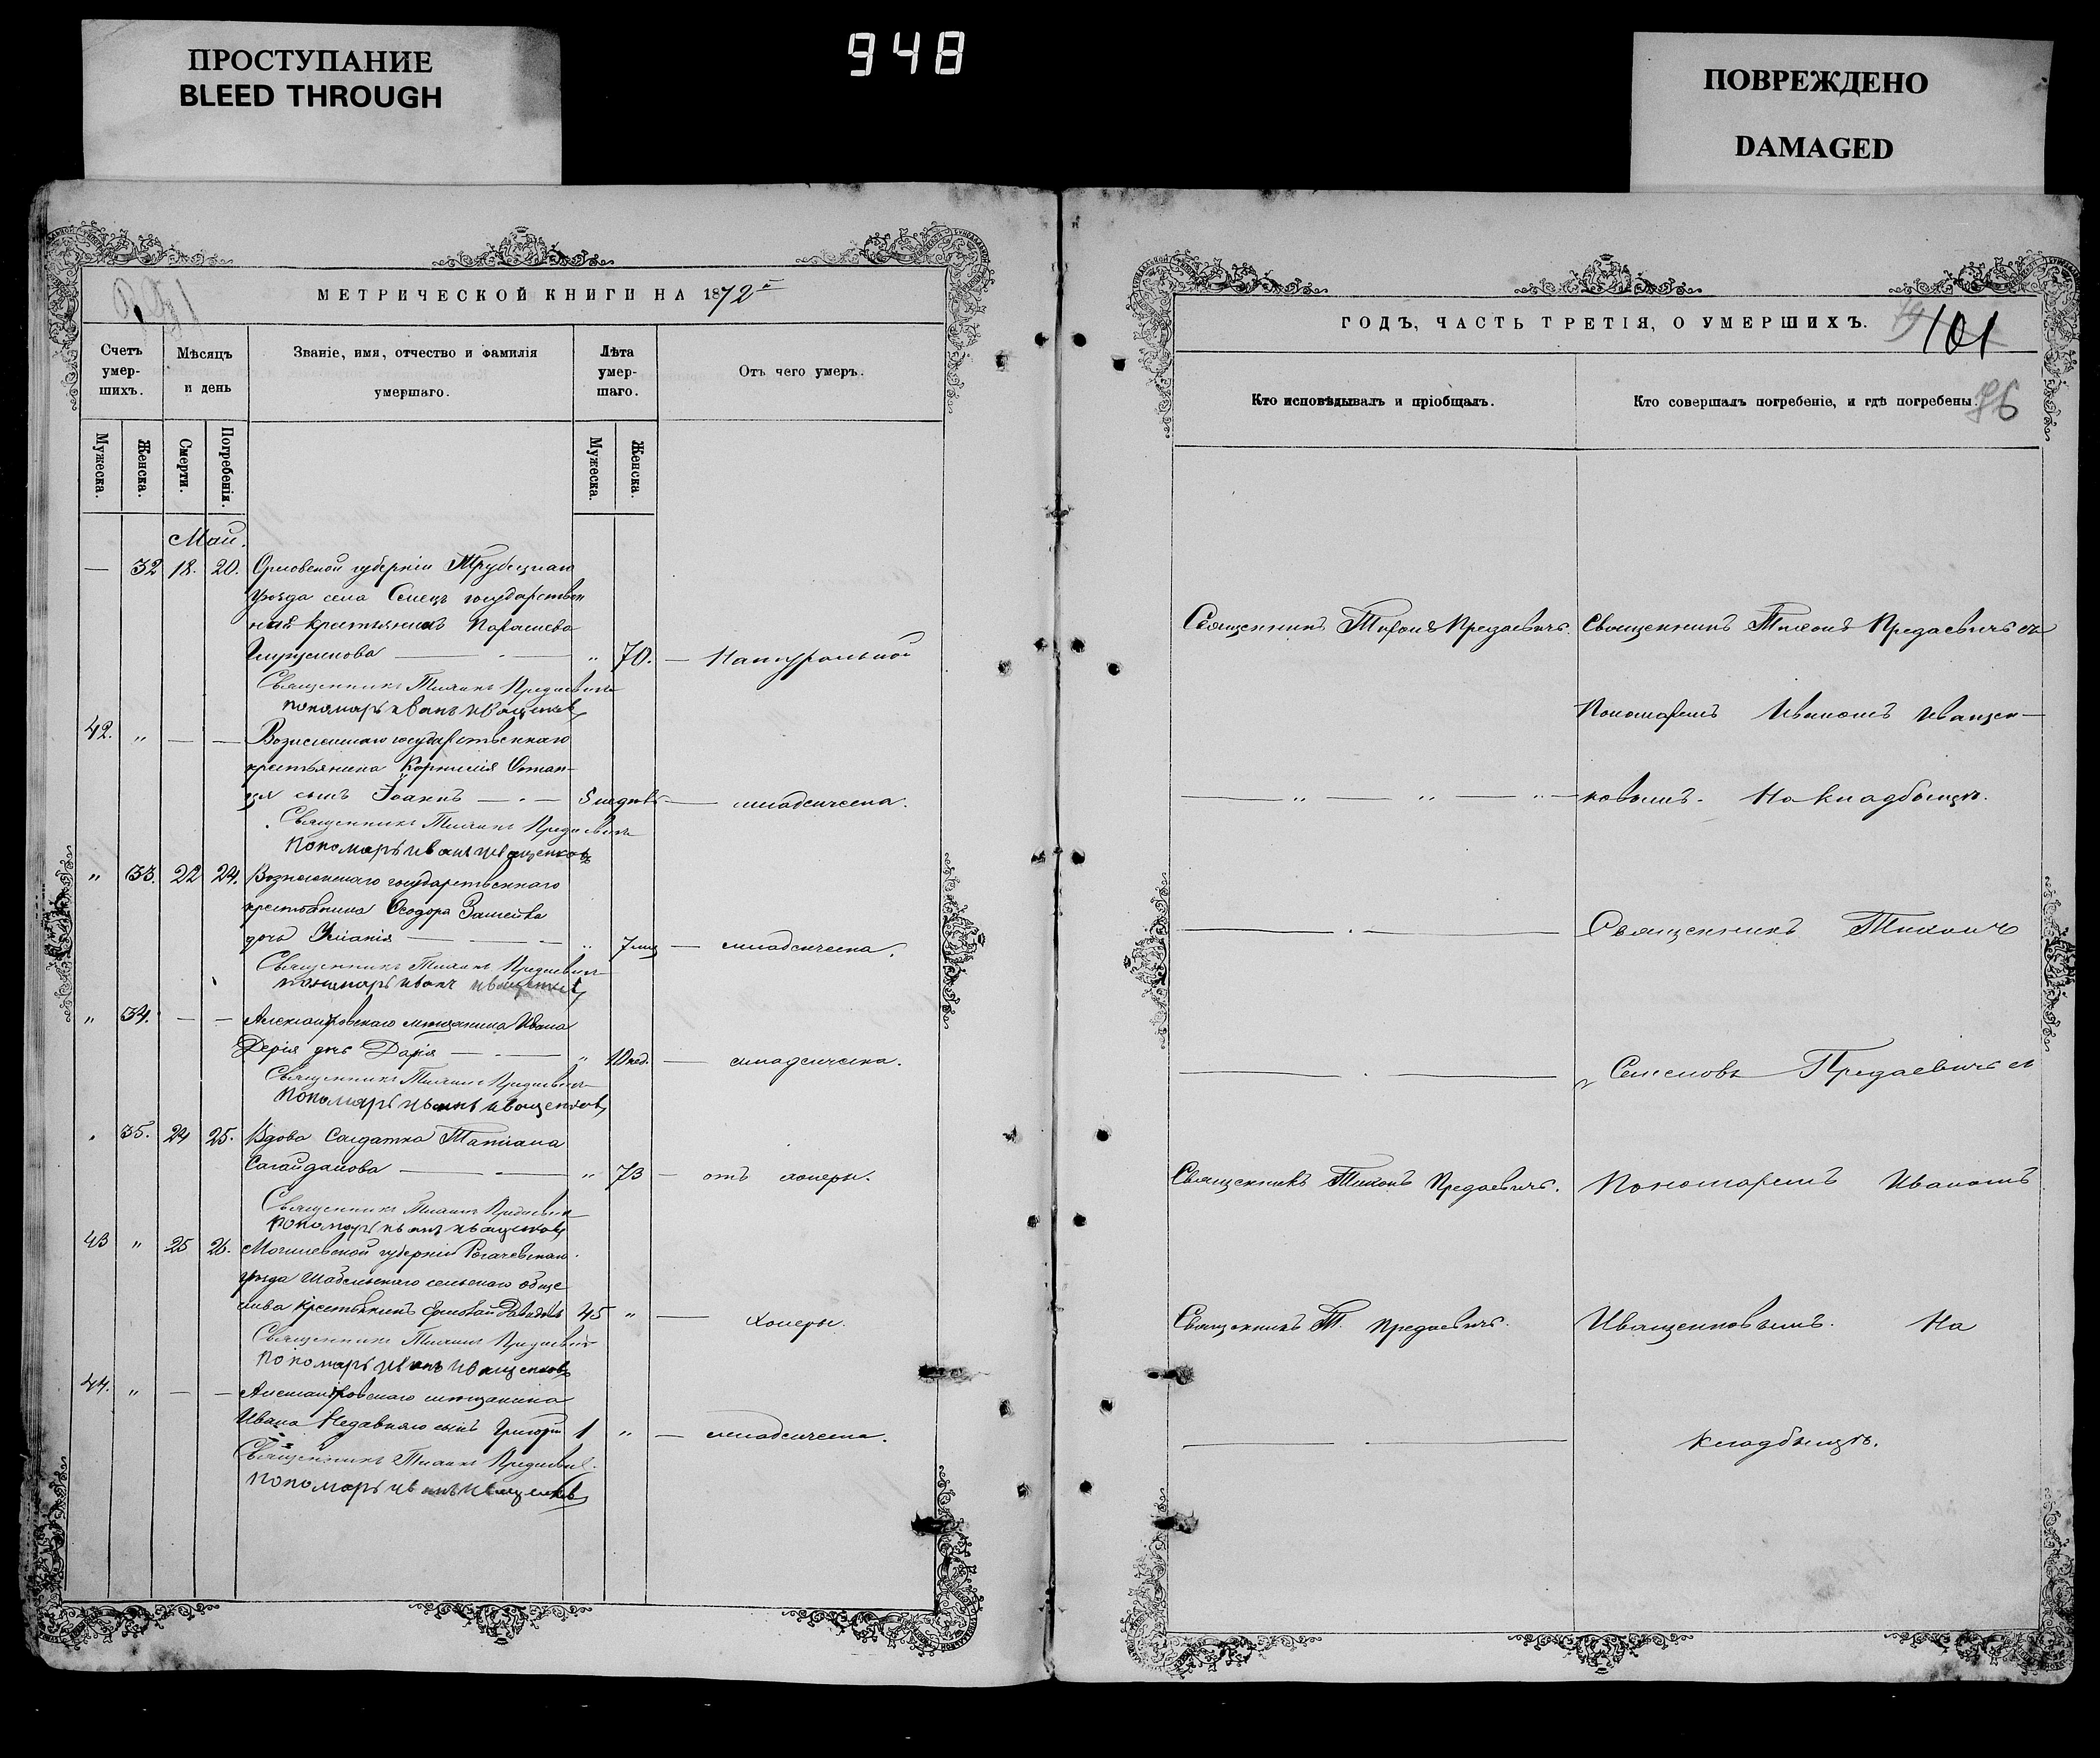 ПРОСТУПАНИЕ
BLEED THROUGH
948
ПОВРЕЖДЕНО
DAMAGED
МЕТРИЧЕСКОЙ КНИГИ НА 1872й
Счетъ умер-шихъ.
Мѣсяцъ и день
Званіе, имя, отчество и фамилія умершаго.
Лѣта умер-шаго.
Отъ чего умеръ.
Мужеска.
Женска.
Смерти.
Погребенія.
Мужеска.
Женска.
Май.
— 32 18. 20. Орловской губерніи Трубецкаго
уѣзда села Семецъ государствен
ной крестьянинъ
— — „ 70. — Натуральной
Священникъ Тихонъ Предаевичъ
пономарь иванъ иващенковъ
42. „ — — Вознесенскаго государственнаго
крестьянина Корнилія Остап-
ца сынъ Іоаннъ — 5 — младенчена.
Священникъ Тихонъ Предаевичъ
пономарь иванъ иващенковъ
„ 33. 22 24. Вознесенскаго государственнаго
крестьянина Ѳеодора
дочь — „ 7 мц — младенчена.
Священникъ Тихонъ Предаевичъ
пономарь иванъ иващенков
„ 34. — — Александровскаго мѣщанина Ивана
дочь Дарія — „ 10 нед. — младенчена.
Священникъ Тихонъ Предаевичъ
пономарь иванъ иващенковъ
„ 35. 24 25. Вдова Солдатка Татіана
Сагайдакова — „ 73 — отъ холеры.
Священникъ Тихонъ Предаевичъ
пономарь иванъ иващенковъ
43 „ 25 26. Могилевской губерніи Рогачевскаго
уѣзда сельскаго обще
ства крестьянинъ 45 „ — Холеры.
Священникъ Тихонъ Предаевичъ
пономарь иванъ иващенковъ
44. „ — — Александровскаго мѣщанина
Ивана сынъ Григорій 1 „ — младенчена.
Священникъ Тихонъ Предаевич
пономарь иванъ иващенковъ
ГОДЪ, ЧАСТЬ ТРЕТІЯ, О УМЕРШИХЪ.
101
Кто исповѣдывалъ и пріобщалъ.
Кто совершалъ погребеніе, и гдѣ погребены.
96
Священникъ Тихонъ Предаевичъ. Священникъ Тихонъ Предаевичъ съ
Пономаремъ Иваномъ Иващен—
— „ — „ — „ — ковымъ. На кладбищѣ.
— Священникъ Тихонъ
— Семеновъ Предаевичъ съ
Священникъ Тихонъ Предаевичъ. Пономаремъ Иваномъ
Священникъ Т. Предаевичъ. Иващенковымъ. На
— кладбищѣ.